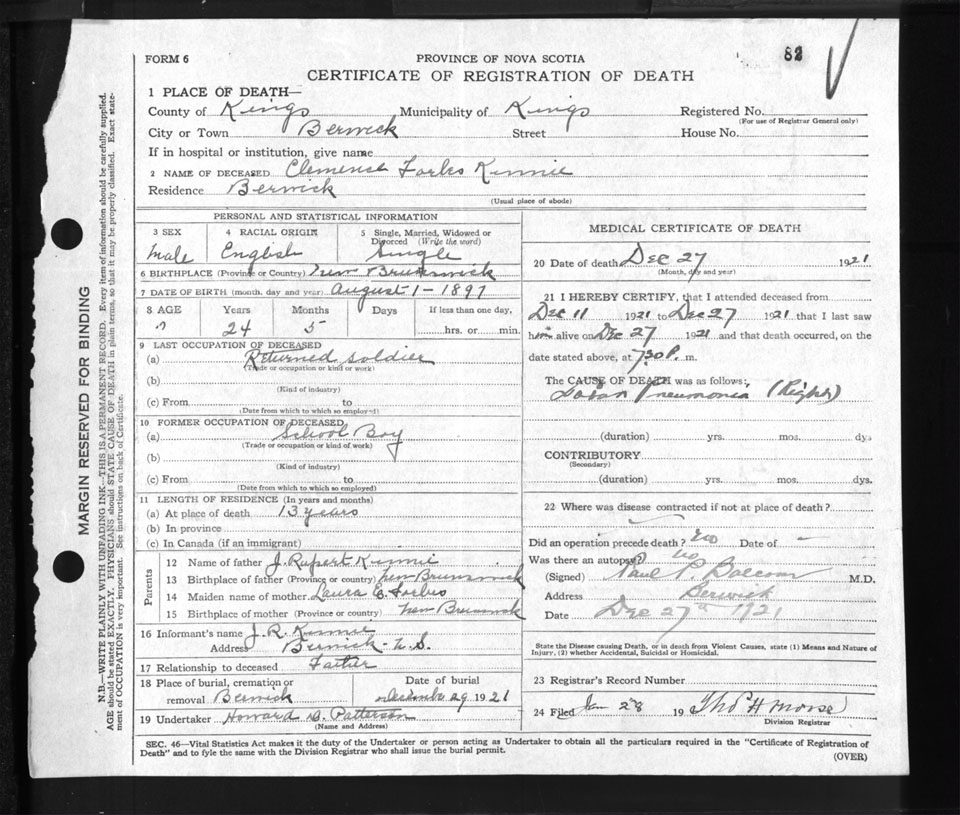 82
FORM 6
PROVINCE OF NOVA SCOTIA
CERTIFICATE OF REGISTRATION OF DEATH
1 PLACE OF DEATH—
County of Kings Municipality of Kings Registered No.
(For use of Registrar General only)
City or Town Berwick Street House No.
If in hospital or institution, give name
2 NAME OF DECEASED Forbes Kinnie
Residence Berwick
(Usual place of abode)
PERSONAL AND STATISTICAL INFORMATION
3 SEX 4 RACIAL ORIGIN 5 Single, Married, Widowed or Divorced (Write the word)
Male English Single
6 BIRTHPLACE (Province or Country) New Brunswick
7 DATE OF BIRTH (month, day and year) August 1 - 1897
8 AGE Years Months Days If less than one day,
24 5 hrs. or min.
9 LAST OCCUPATION OF DECEASED
(a) Returned Soldier
(Trade or occupation or kind or work)
(b)
(Kind of industry)
(c) From to
(Date from which to which so employed)
10 FORMER OCCUPATION OF DECEASED
(a) School Boy
(Trade or occupation or kind of work)
(b)
(Kind of industry)
(c) From to
(Date from which to which so employed)
11 LENGTH OF RESIDENCE (In years and months)
(a) At place of death 13 years
(b) In province
(c) In Canada (if an immigrant)
Parents
12 Name of father J. Rupert Kinnie
13 Birthplace of father (Province or country) New Brunswick
14 Maiden name of mother Laura E. Forbes
15 Birthplace of mother (Province or country) New Brunswick
16 Informant's name J. R. Kinnie
Address Berwick - N.S.
17 Relationship to deceased Father
18 Place of burial, cremation or removal Berwick
Date of burial December 29 1921
19 Undertaker Howard D. Patterson
(Name and Address)
MEDICAL CERTIFICATE OF DEATH
20 Date of death Dec 27 1921
(Month, day and year)
21 I HEREBY CERTIFY, that I attended deceased from
Dec 11 1921 to Dec 27 1921 that I last saw
him alive on Dec 27 1921 and that death occurred, on the
date stated above, at 7.30 P. m.
The CAUSE OF DEATH was as follows:
Lobar Pneumonia (Right)
(duration) yrs. mos. dys
CONTRIBUTORY
(Secondary)
(duration) yrs. mos. dys.
22 Where was disease contracted if not at place of death?
Did an operation precede death? No Date of -
Was there an autopsy? No
(Signed) Paul P. Balcom M.D.
Address Berwick
Date Dec 27th 1921
State the Disease causing Death, or in death from Violent Causes, state (1) Means and Nature of
Injury, (2) whether Accidental, Suicidal or Homicidal.
23 Registrar's Record Number
24 Filed Jan 28 19 Thos H Morse
Division Registrar
SEC. 46—Vital Statistics Act makes it the duty of the Undertaker or person acting as Undertaker to obtain all the particulars required in the "Certificate of Registration of
Death" and to fyle the same with the Division Registrar who shall issue the burial permit.
(OVER)
MARGIN RESERVED FOR BINDING
N.B.—WRITE PLAINLY WITH UNFADING INK—THIS IS A PERMANENT RECORD. Every item of information should be carefully supplied.
AGE should be stated EXACTLY. PHYSICIANS should STATE CAUSE OF DEATH in plain terms, so that it may be properly classified. Exact state-
ment of OCCUPATION is very important. See instructions on back of Certificate.